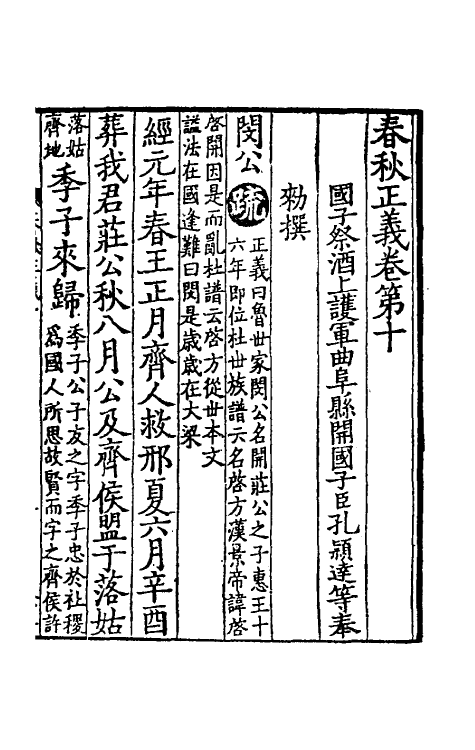 春秋正義卷第十
國子祭酒上護軍曲阜縣開國子臣孔穎達等奉
勑撰
閔公 疏 正義曰魯世家閔公名開莊公之子惠王十
六年即位杜世族譜云名啓方漢景帝諱啓
啓開因是而亂杜譜云啓方從世本文
謚法在國逢難曰閔是歲歲在大梁
經元年春王正月齊人救邢夏六月辛酉
葬我君莊公秋八月公及齊侯盟于落姑
落姑
齊地 季子來歸 季子公子友之字季子忠於社稷
爲國人所思故賢而字之齊侯許